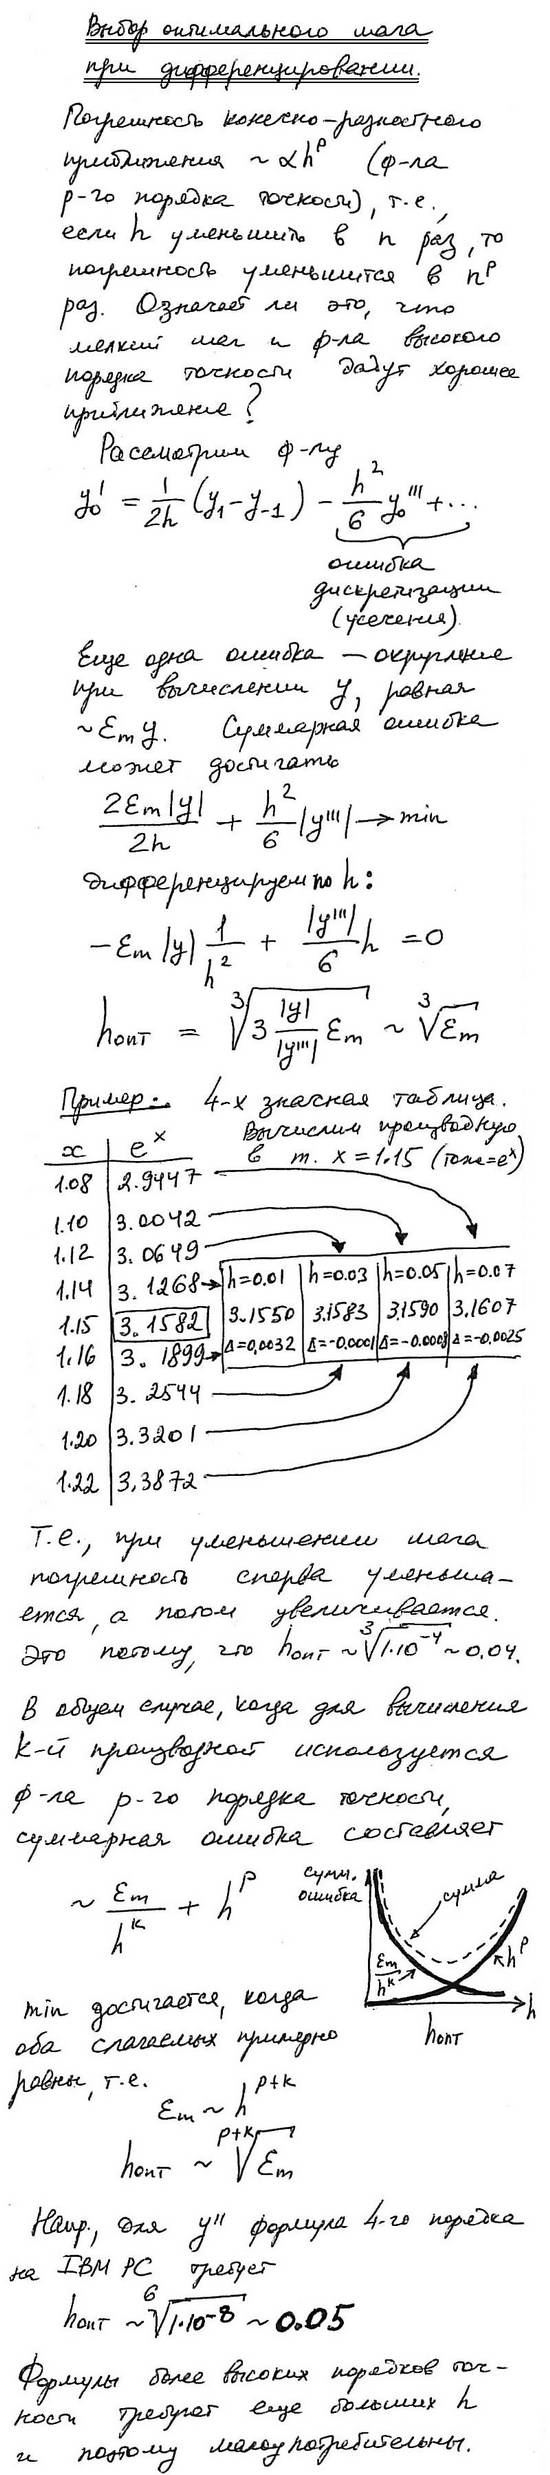 Выбор оптимального шага
при дифференцировании.
Погрешность конечно-разностного
приближения ~ αh^p (ф-ла
p-го порядка точности), т.е.,
если h уменьшить в n раз, то
погрешность уменьшится в n^p
раз. Означает ли это, что
мелкий шаг и ф-ла высокого
порядка точности дадут хорошее
приближение?
Рассмотрим ф-лу
y₀' = 1/2h (y₁ - y₋₁) - h²/6 y₀''' + ...
ошибка
дискретизации
(усечения).
Еще одна ошибка — округление
при вычислении y, равная
~ εm y. Суммарная ошибка
может достигать
2εm|y|/2h + h²/6 |y'''| → min
дифференцируем по h:
-εm |y| 1/h² + |y'''|/6 h = 0
hопт = ∛(3 |y|/|y'''| εm) ~ ∛εm
Пример: 4-х значная таблица.
x e^x Вычислим производную
в т. x = 1.15 (тоже = e^x)
1.08 2.9447
1.10 3.0042
1.12 3.0649
1.14 3.1268 h=0.01 h=0.03 h=0.05 h=0.07
1.15 3.1582 3.1550 3.1583 3.1590 3.1607
1.16 3.1899 Δ=0,0032 Δ=-0.0001 Δ=-0.0008 Δ=-0.0025
1.18 3.2544
1.20 3.3201
1.22 3.3872
Т.е., при уменьшении шага
погрешность сперва уменьша-
ется, а потом увеличивается.
Это потому, что hопт ~ ∛(1·10⁻⁴) ~ 0.04.
В общем случае, когда для вычисления
k-й производной используется
ф-ла p-го порядка точности,
суммарная ошибка составляет
~ εm/h^k + h^p
сумм.
ошибка
сумма
εm/h^k
h^p
h
hопт
min достигается, когда
оба слагаемых примерно
равны, т.е.
εm ~ h^(p+k)
hопт ~ ᵖ⁺ᵏ√εm
Напр., для y'' формула 4-го порядка
на IBM PC требует
hопт ~ ⁶√(1·10⁻⁸) ~ 0.05
Формулы более высоких порядков точ-
ности требуют еще больших h
и поэтому малоупотребительны.